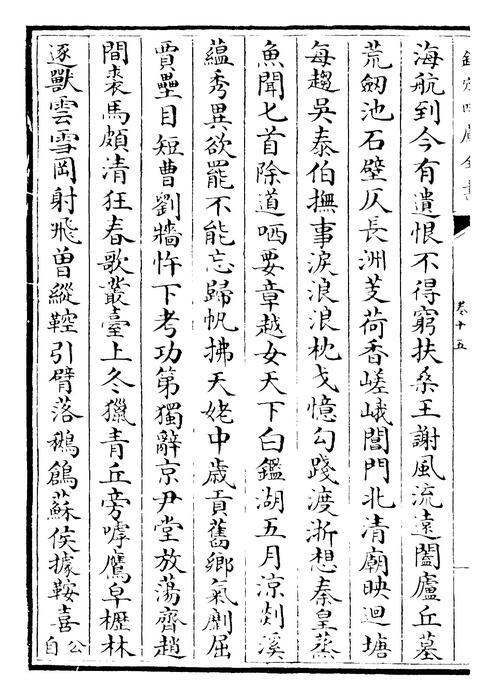 欽定四庫全書
卷十五
海航到今有遺恨不得窮扶桑王謝風流遠闔廬丘墓
荒劒池石壁仄長洲芰荷香嵯峨閶門北清廟映迴塘
每趨吳泰伯撫事淚浪浪枕戈憶勾踐渡浙想秦皇蒸
魚聞匕首除道哂要章越女天下白鑑湖五月涼剡溪
蘊秀異欲罷不能忘歸帆拂天姥中歲貢舊鄉氣劘屈
賈壘目短曹劉牆忤下考功第獨辭京尹堂放蕩齊趙
間裘馬頗清狂春歌叢臺上冬獵青丘旁嘑鷹皁櫪林
逐獸雲雪岡射飛曾縱鞚引臂落鶖鶬蘇侯據鞍喜公自